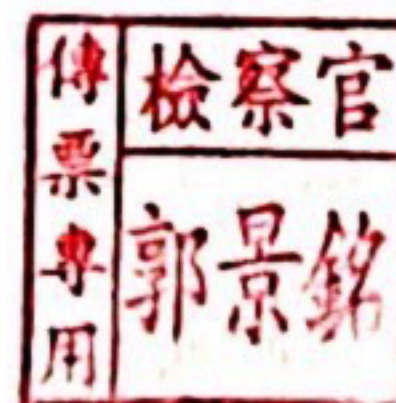 傳票專用
檢察官
郭景銘